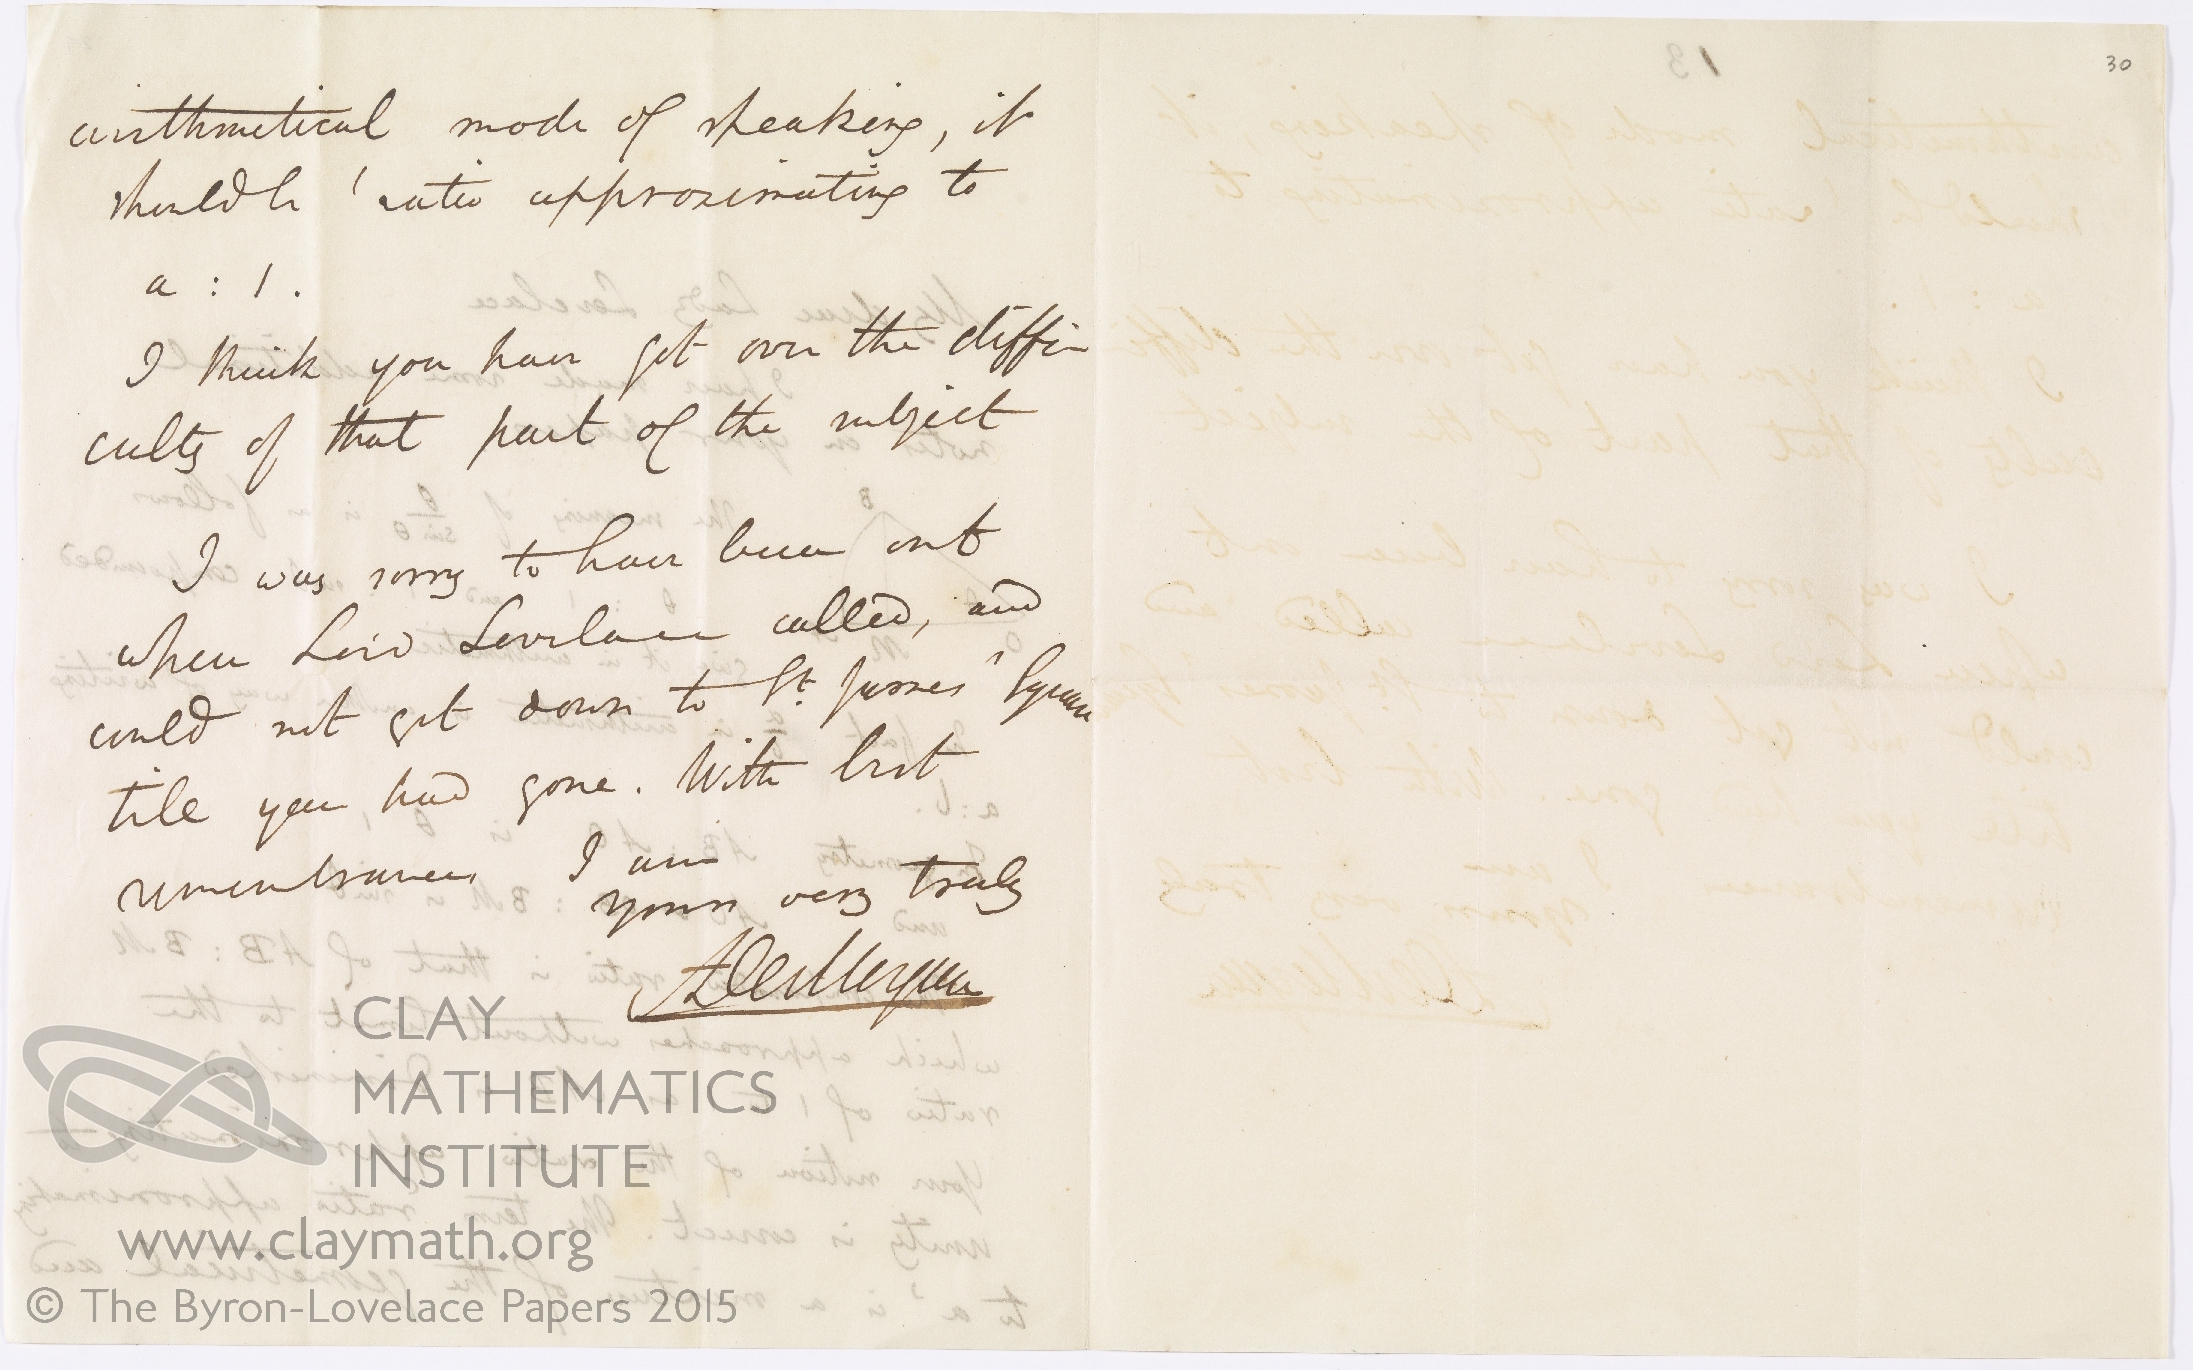 arithmetical mode of speaking, it
should be 'ratio approximating to
a : 1.
I think you have got over the diffi
culty of that part of the subject
I was sorry to have been out
when Lord Lovelace called, and
could not get down to St. James' Square
till you had gone. With best
remembrances I am
yours very truly
ADeMorgan
30
13
CLAY
MATHEMATICS
INSTITUTE
www.claymath.org
© The Byron-Lovelace Papers 2015